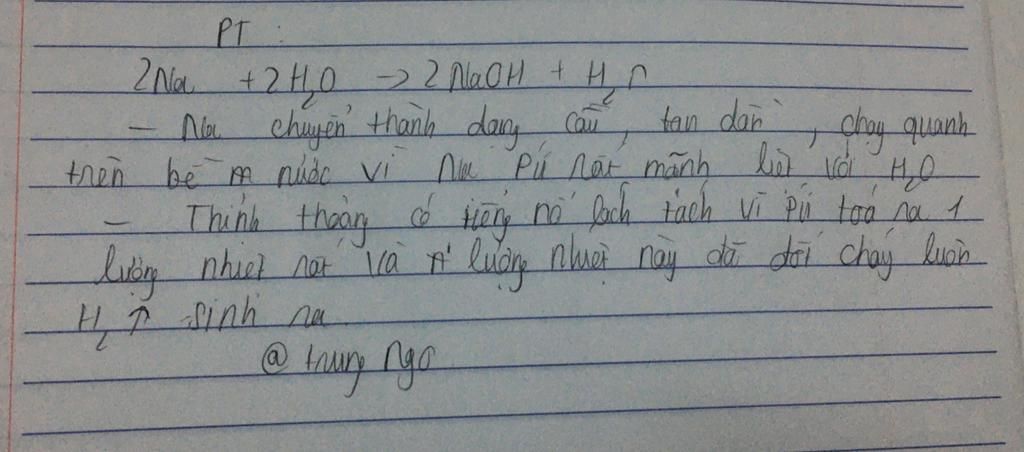 PT :
2Na + 2H₂O → 2NaOH + H₂↑
- Na chuyển thành dạng cầu, tan dần, chạy quanh
trên bề m nước vì Na pứ rất mãnh liệt với H₂O
- Thỉnh thoảng có tiếng nổ lách tách vì pứ toả ra 1
lượng nhiệt rất và lượng nhiệt này đã đốt cháy luôn
H₂↑ sinh ra
@ trung ngo